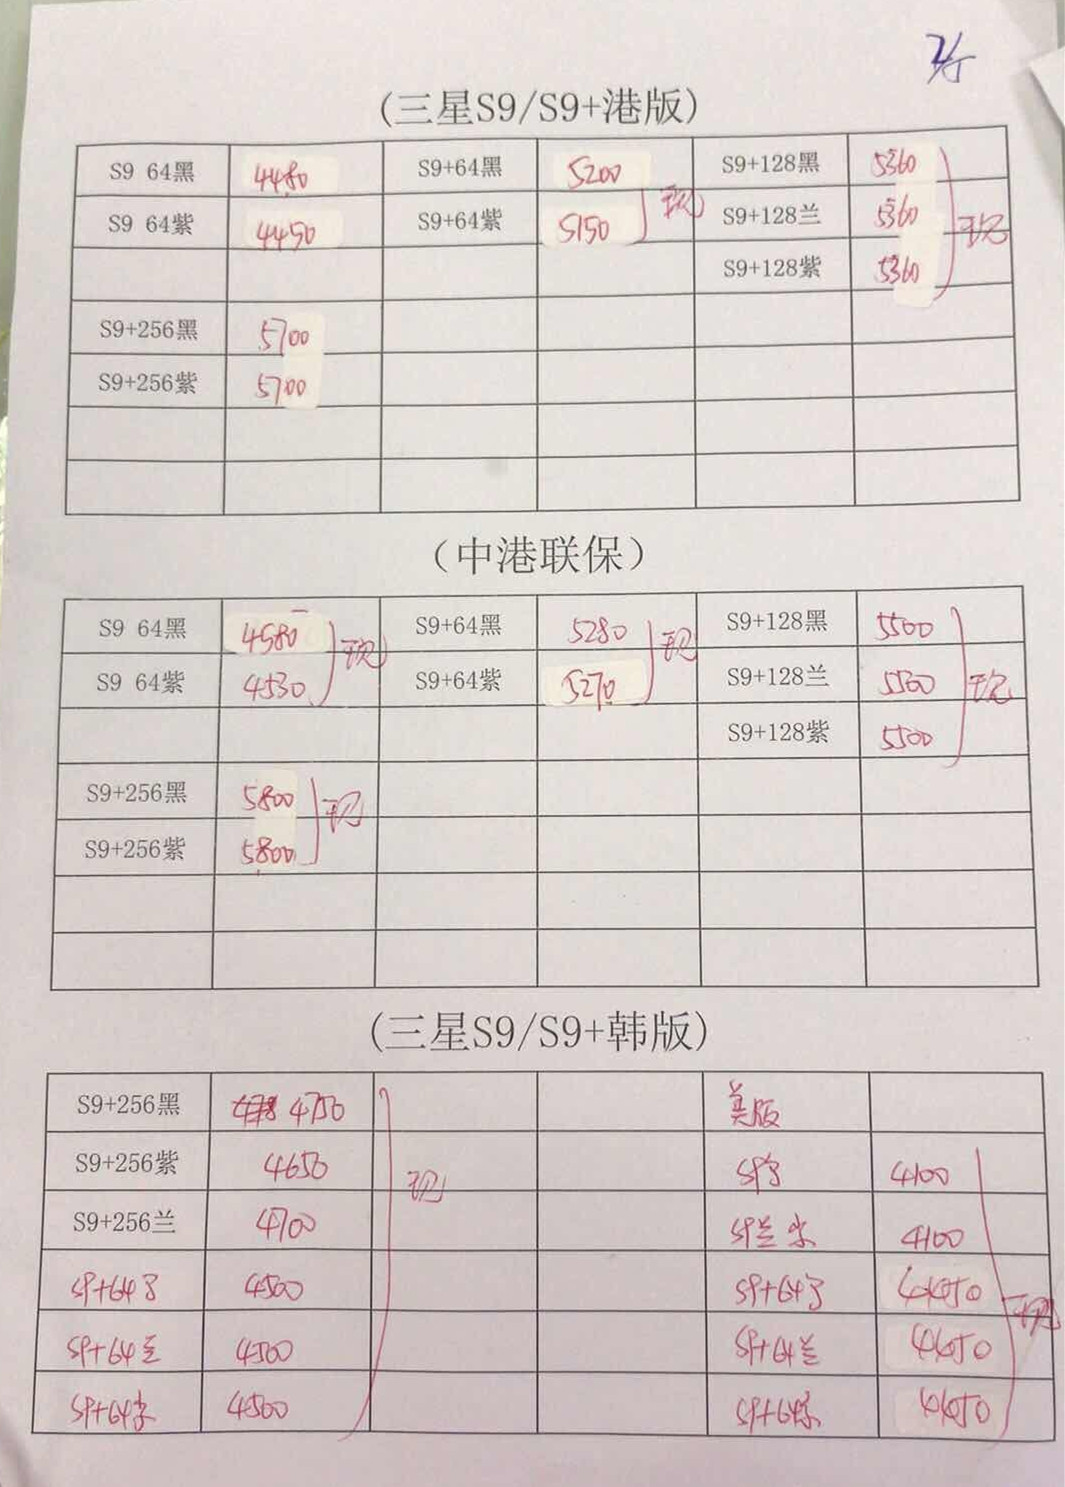 2/5
(三星S9/S9+港版)
S9 64黑 4480 S9+64黑 5200 S9+128黑 5360
S9 64紫 4450 S9+64紫 5150 现 S9+128兰 5360 现
S9+128紫 5360
S9+256黑 5700
S9+256紫 5700
（中港联保）
S9 64黑 4580 现 S9+64黑 5280 现 S9+128黑 5500
S9 64紫 4530 S9+64紫 5270 S9+128兰 5500 现
S9+128紫 5500
S9+256黑 5800 现
S9+256紫 5800
(三星S9/S9+韩版)
S9+256黑 4750 美版
S9+256紫 4650 现 S9 4100
S9+256兰 4700 S9兰 4100
S9+64 4500 S9+64 4450 现
S9+64兰 4500 S9+64兰 4450
S9+64紫 4500 S9+64紫 4450